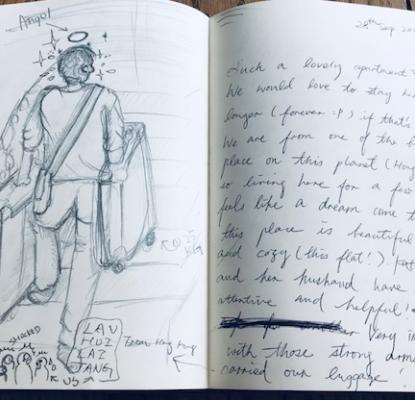 Angel
SHOCKED
US
LAU
HUI
KAI
JANG
From Hong Kong
28th Sep
Such a lovely apartment
We would love to stay
longer (forever :P) if that's
We are from one of the
place on this planet (Hong
so living here for a
feels like a dream come
this place is beautiful
and cozy (this flat!).
and her husband have
attentive and helpful!
very
with those strong arms
carried our luggage!